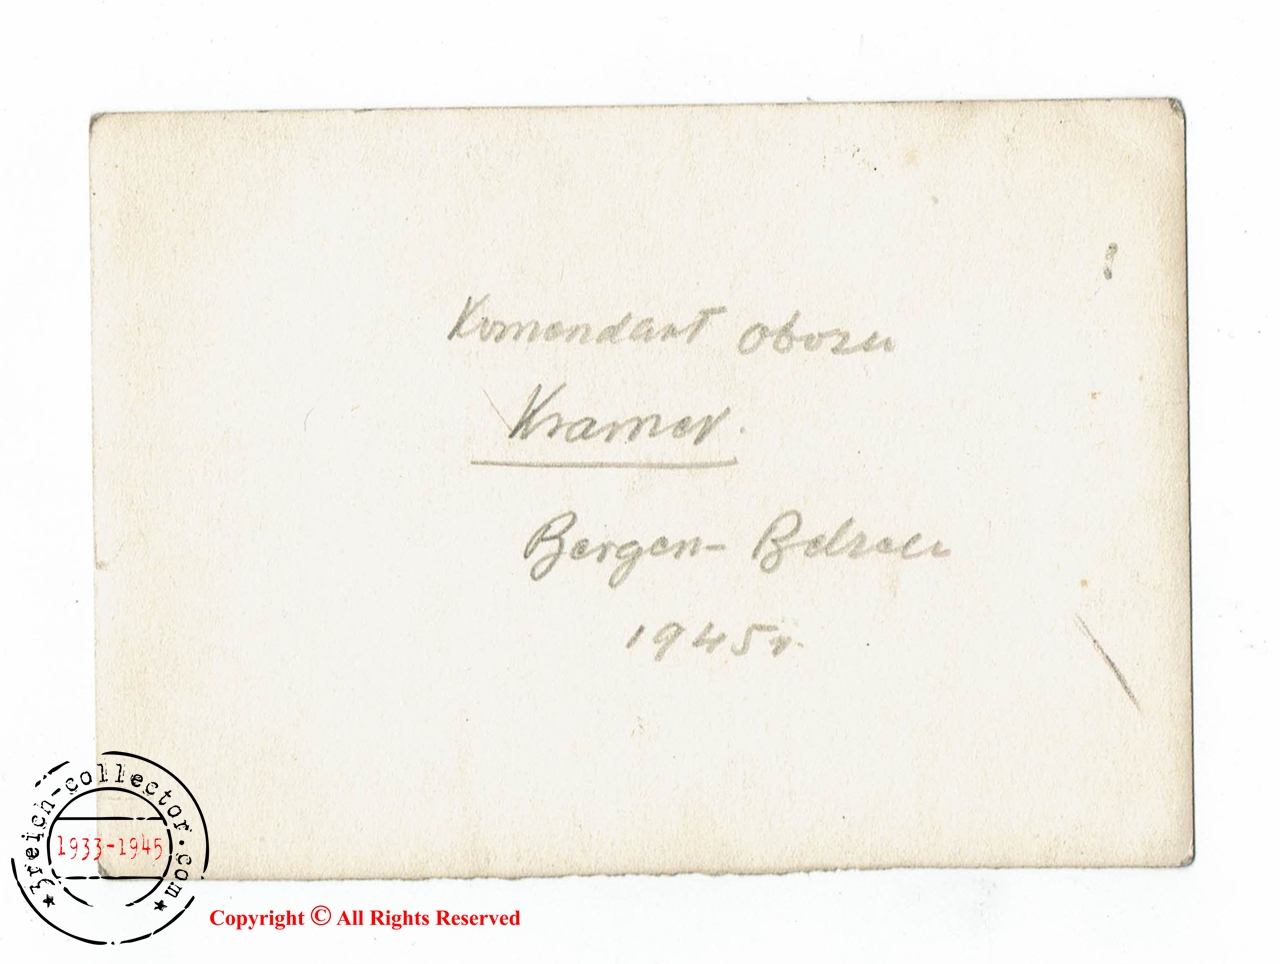 Komendant obozu
Kramer.
Bergen-Belsen
1945r.
3reich-collector.com
1933-1945
Copyright © All Rights Reserved